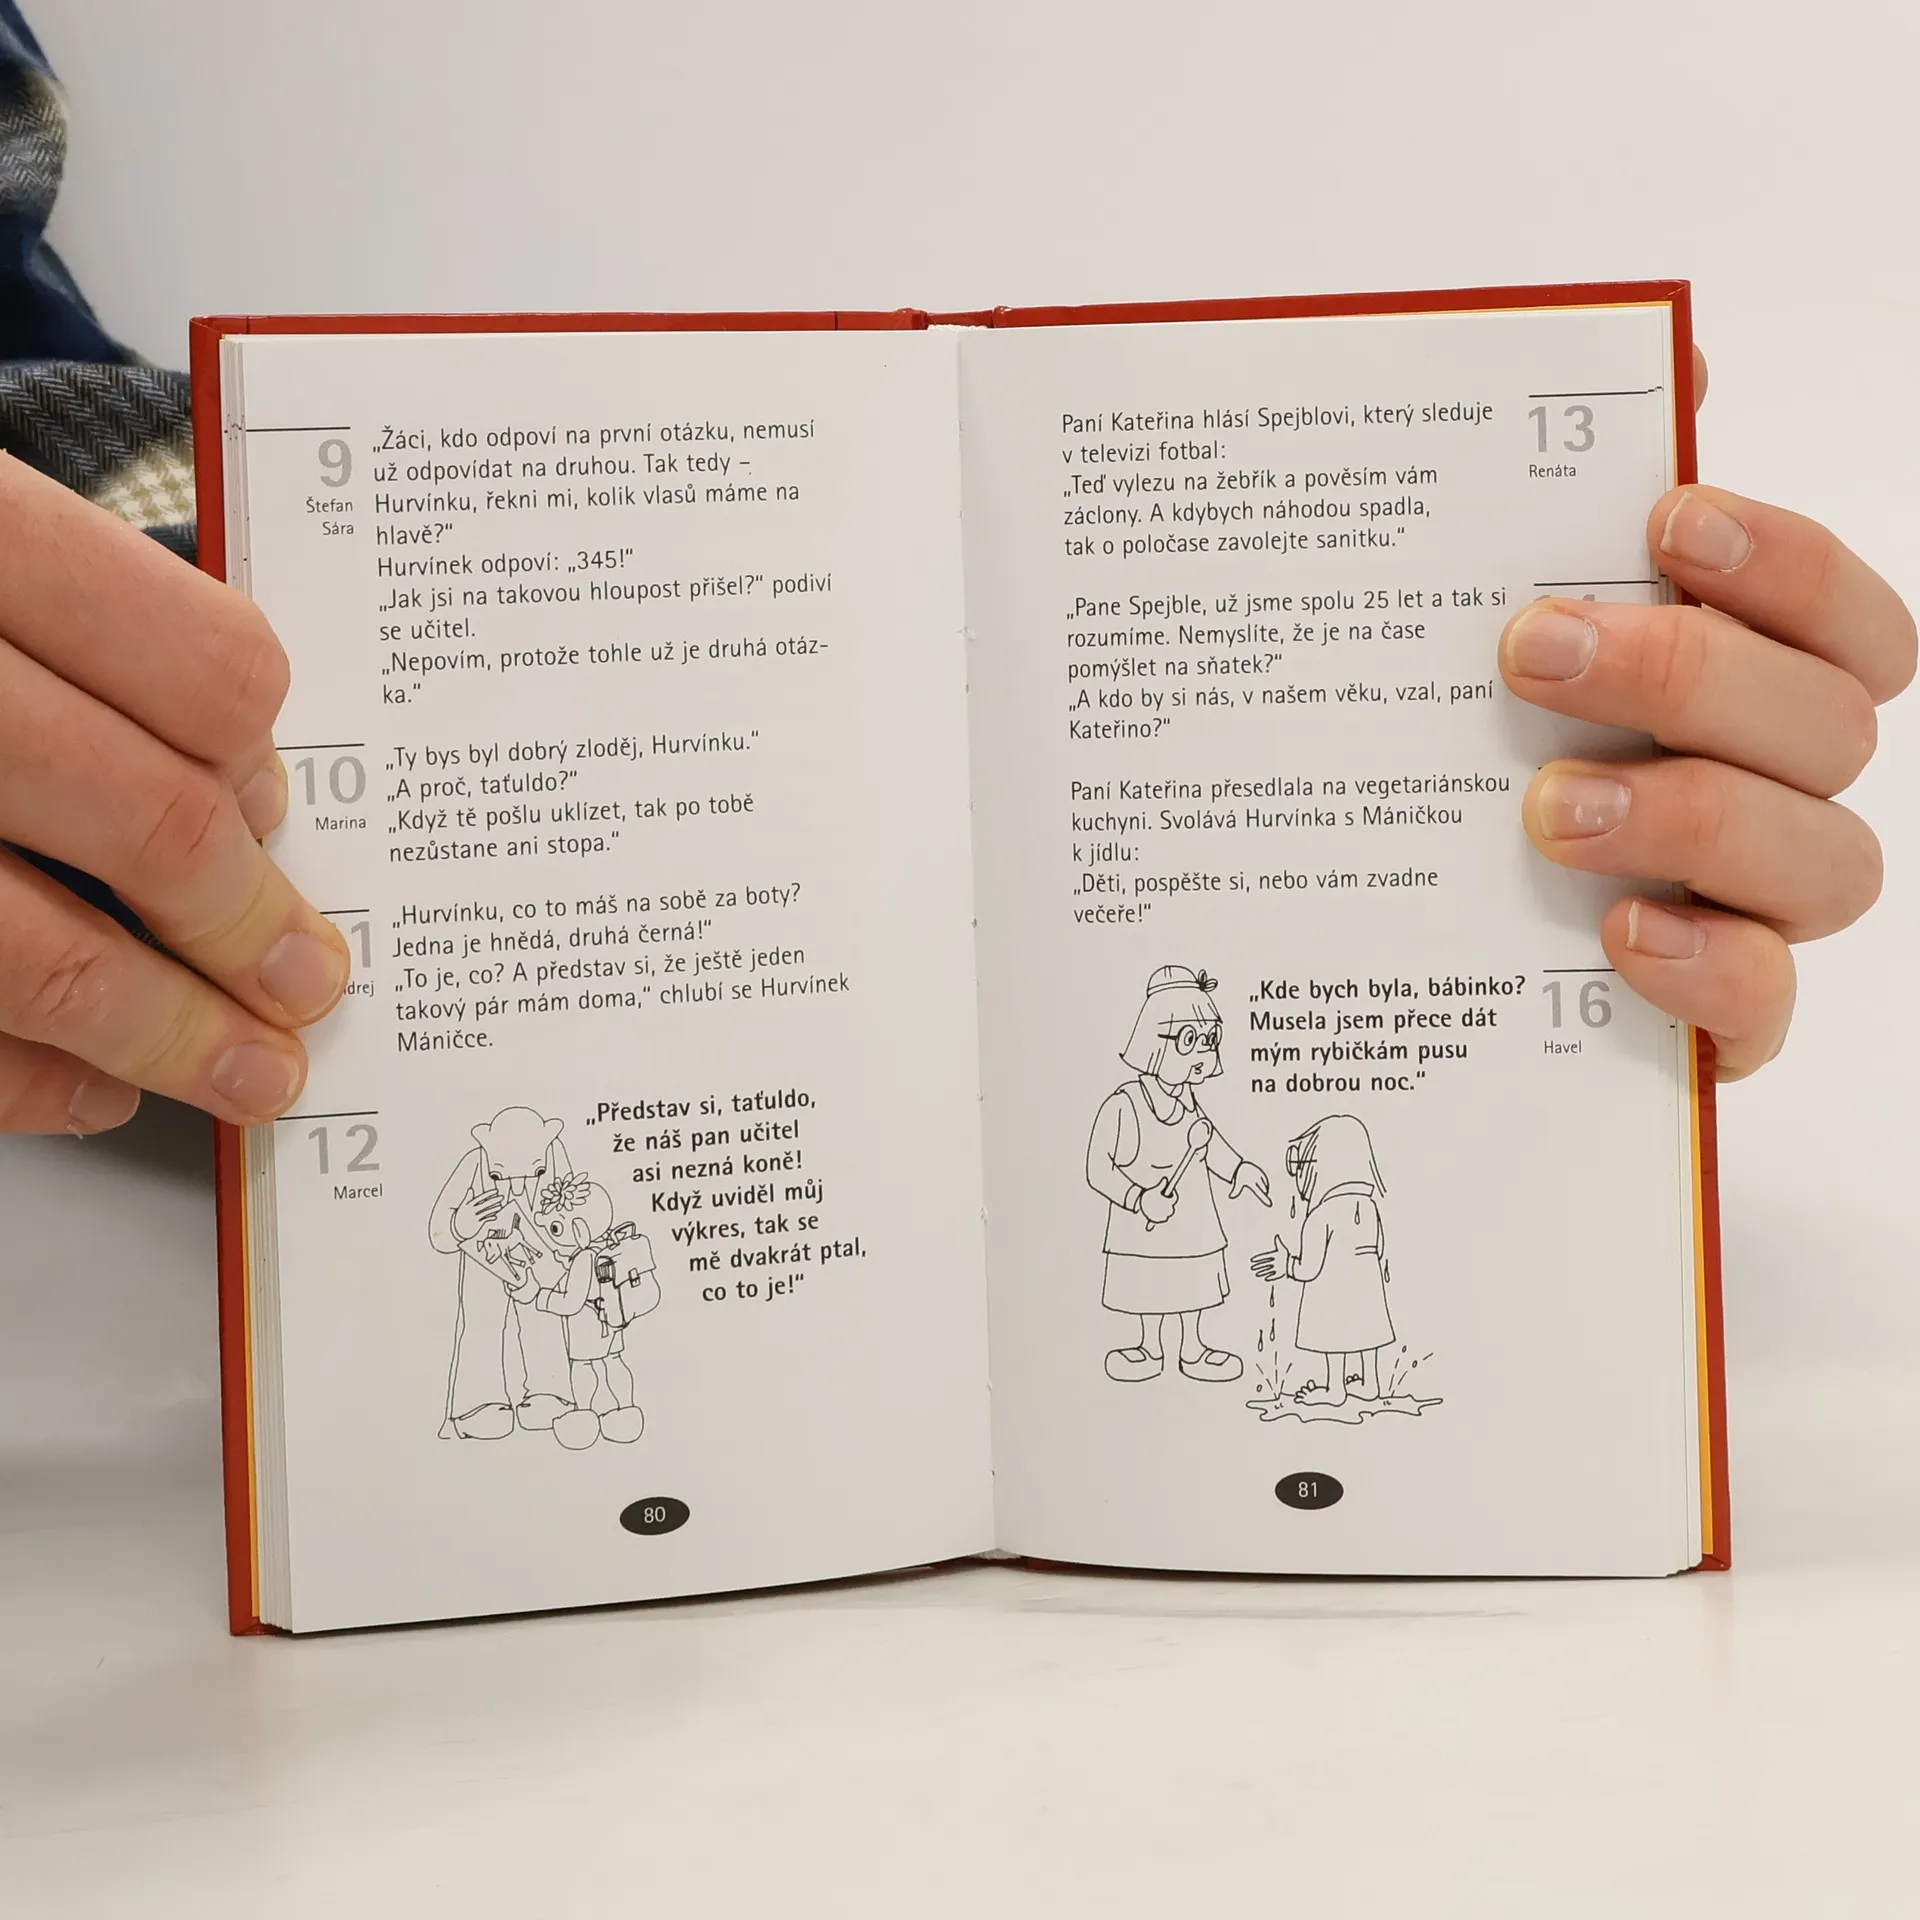 9
Štefan
Sára
„Žáci, kdo odpoví na první otázku, nemusí
už odpovídat na druhou. Tak tedy –
Hurvínku, řekni mi, kolik vlasů máme na
hlavě?“
Hurvínek odpoví: „345!“
„Jak jsi na takovou hloupost přišel?“ podiví
se učitel.
„Nepovím, protože tohle už je druhá otáz-
ka.“
10
Marina
„Ty bys byl dobrý zloděj, Hurvínku.“
„A proč, taťuldo?“
„Když tě pošlu uklízet, tak po tobě
nezůstane ani stopa.“
1
drej
„Hurvínku, co to máš na sobě za boty?
Jedna je hnědá, druhá černá!“
„To je, co? A představ si, že ještě jeden
takový pár mám doma,“ chlubí se Hurvínek
Máničce.
12
Marcel
„Představ si, taťuldo,
že náš pan učitel
asi nezná koně!
Když uviděl můj
výkres, tak se
mě dvakrát ptal,
co to je!“
80
13
Renáta
Paní Kateřina hlásí Spejblovi, který sleduje
v televizi fotbal:
„Teď vylezu na žebřík a pověsím vám
záclony. A kdybych náhodou spadla,
tak o poločase zavolejte sanitku.“
„Pane Spejble, už jsme spolu 25 let a tak si
rozumíme. Nemyslíte, že je na čase
pomýšlet na sňatek?“
„A kdo by si nás, v našem věku, vzal, paní
Kateřino?“
Paní Kateřina přesedlala na vegetariánskou
kuchyni. Svolává Hurvínka s Máničkou
k jídlu:
„Děti, pospěšte si, nebo vám zvadne
večeře!“
16
Havel
„Kde bych byla, bábinko?
Musela jsem přece dát
mým rybičkám pusu
na dobrou noc.“
81